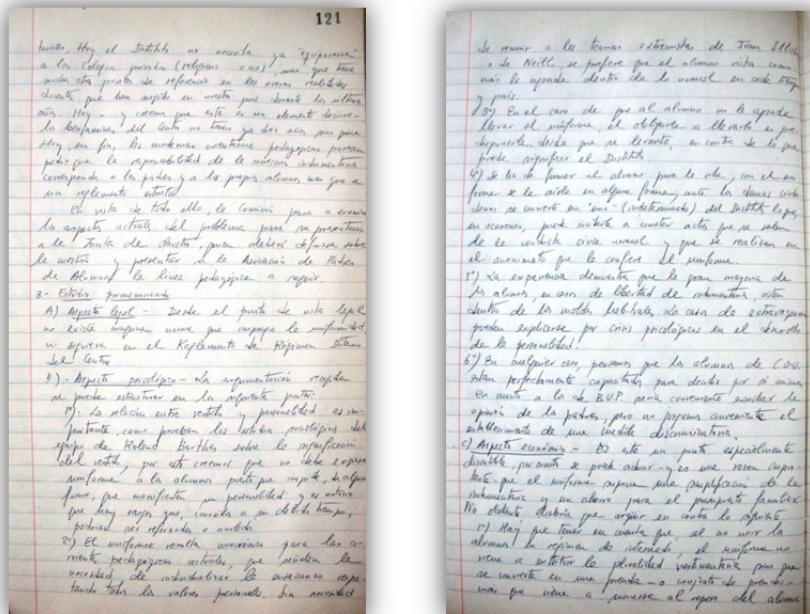 121
Hoy el Instituto no necesita ya "equipararse"
a los Colegios privados (religiosos o no), sino que tiene
muchos otros puntos de referencia en las nuevas realidades
docentes que han surgido en nuestro país durante los últimos
años. Hoy - y creemos que este es un elemento decisivo -
los benjamines del Centro no tienen ya diez años sino
Hoy, en fin, las modernas orientaciones pedagógicas
que la responsabilidad de la indumentaria
corresponda a los padres y a los propios alumnos mas que a
un reglamento estricto
En vista de todo ello, la Comisión pasa a examinar
los aspectos actuales del problema para su presentación
a la Junta de claustro, quien deberá definirse sobre
la cuestión y presentar a la Asociación de Padres
de Alumnos la línea pedagógica a seguir.
3- Estudio pormenorizado
A) Aspecto legal - Desde el punto de vista legal
no existe ninguna norma que imponga la uniformidad
ni siquiera en el Reglamento de Régimen Interno
del Centro
B) - Aspecto psicológico - La argumentación recogida
se puede estructurar en los siguientes puntos:
1º) - La relación entre vestido y personalidad es im-
portante, como prueban los estudios sociológicos del
equipo de Roland Barthes sobre la significación
del vestido, por esto creemos que no debe
uniforme a los alumnos puesto que impide, de alguna
forma, que manifiesten su personalidad y es notorio
que hay rasgos que, conocidos a su debido tiempo,
podrían ser reforzados o
2º) El uniforme resulta anacrónico para las co-
rrientes pedagógicas actuales, que señalan la
necesidad de individualizar la enseñanza respe-
tando todos los valores personales. Sin necesidad
de recurrir a las teorías extremistas de Ivan Illich
o de Neill, se prefiere que el alumno vista como
más le agrade dentro de lo normal en cada
y país.
3º) En el caso de que al alumno no le agrade
llevar el uniforme, el obligarle a llevarlo es pre-
disponerle, desde que se levanta, en contra de lo que
puede significar el Instituto.
4º) Se ha de formar al alumno para la vida, con el uni-
forme se le aisla en alguna forma, ante los demas ciuda-
danos se convierte en "uno" (indeterminado) del Instituto lo que,
en ocasiones, puede incitarle a cometer actos que se salen
de la conducta cívica normal y que se realizan en
el anonimato que le confiere el uniforme.
5º) La experiencia demuestra que la gran mayoría de
los alumnos, en caso de libertad de indumentaria visten
dentro de los moldes habituales. Los casos de extravagancia
pueden explicarse por crisis psicológicas en el desarrollo
de la personalidad.
6º) En cualquier caso, pensamos que los alumnos de C.O.U.
están perfectamente capacitados para decidir por si mismos
En cuanto a los de BUP sería conveniente escuchar la
opinión de los padres, pero no juzgamos conveniente el
establecimiento de una medida discriminatoria.
C) Aspecto económico - Es este un punto especialmente
discutible, por cuanto se puede aducir - y es una razon impor-
tante, que el uniforme supone una simplificación de la
indumentaria y un ahorro para el presupuesto familiar
No obstante habría que argüir en contra lo siguiente
1º) Hay que tener en cuenta que, al no vivir los
alumnos en regimen de internado, el uniforme no
viene a sustituir la pluralidad vestimentaria sino que
se convierte en una prenda - o conjunto de prendas -
mas que viene a sumarse al ropero del alumno